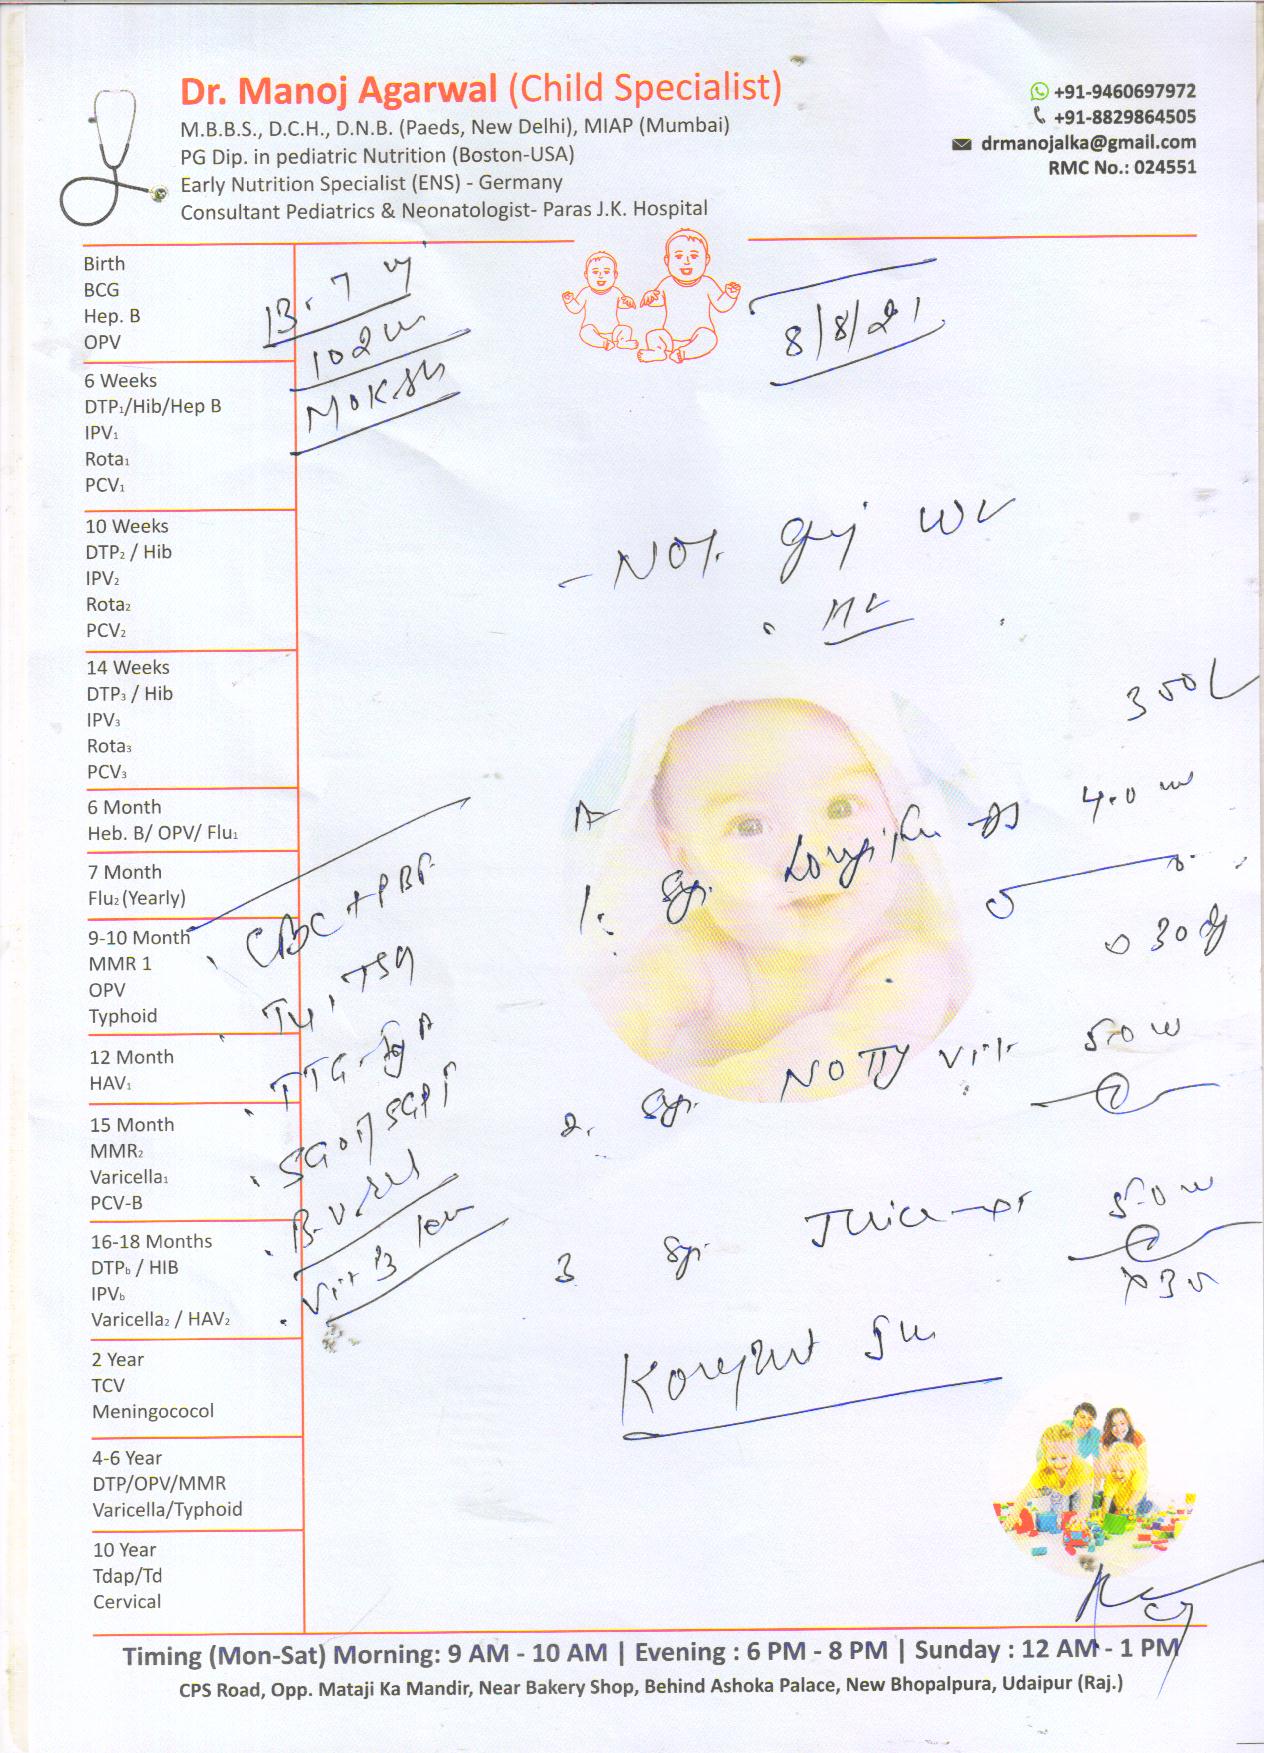 Dr. Manoj Agarwal (Child Specialist)
M.B.B.S., D.C.H., D.N.B. (Paeds, New Delhi), MIAP (Mumbai)
PG Dip. in pediatric Nutrition (Boston-USA)
Early Nutrition Specialist (ENS) - Germany
Consultant Pediatrics & Neonatologist- Paras J.K. Hospital
+91-9460697972
+91-8829864505
drmanojalka@gmail.com
RMC No.: 024551
Birth
BCG
Hep. B
OPV
6 Weeks
DTP₁/Hib/Hep B
IPV₁
Rota₁
PCV₁
10 Weeks
DTP₂ / Hib
IPV₂
Rota₂
PCV₂
14 Weeks
DTP₃ / Hib
IPV₃
Rota₃
PCV₃
6 Month
Heb. B/ OPV/ Flu₁
7 Month
Flu₂ (Yearly)
9-10 Month
MMR 1
OPV
Typhoid
12 Month
HAV₁
15 Month
MMR₂
Varicella₁
PCV-B
16-18 Months
DTPb / HIB
IPVb
Varicella₂ / HAV₂
2 Year
TCV
Meningococol
4-6 Year
DTP/OPV/MMR
Varicella/Typhoid
10 Year
Tdap/Td
Cervical
13.7
102
8/8/21
CBC + PBF
TSH
TTG-IgA
SGOT/SGPT
Vit B
- Not
1. Syp. 4.0
30
2. Syp. 5.0
3 Syp. 5.0
Timing (Mon-Sat) Morning: 9 AM - 10 AM | Evening : 6 PM - 8 PM | Sunday : 12 AM - 1 PM
CPS Road, Opp. Mataji Ka Mandir, Near Bakery Shop, Behind Ashoka Palace, New Bhopalpura, Udaipur (Raj.)